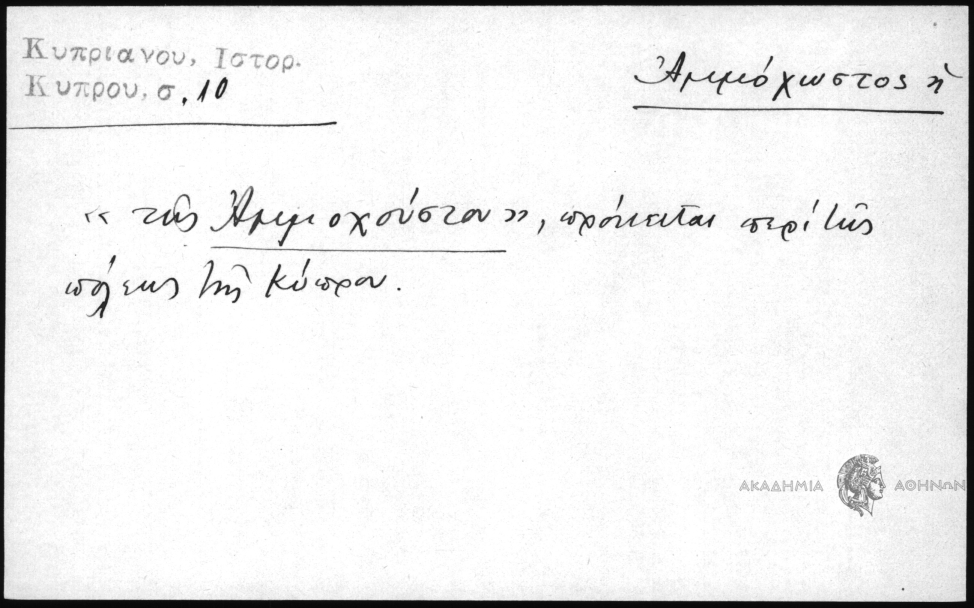 Κυπριανου, Ιστορ.
Κυπρου, σ. 10
Ἀμμόχωστος ἡ
« τῆς Ἀμμοχούστου », πρόκειται περὶ τῆς
πόλεως τῆς Κύπρου.
ΑΚΑΔΗΜΙΑ ΑΘΗΝΩΝ